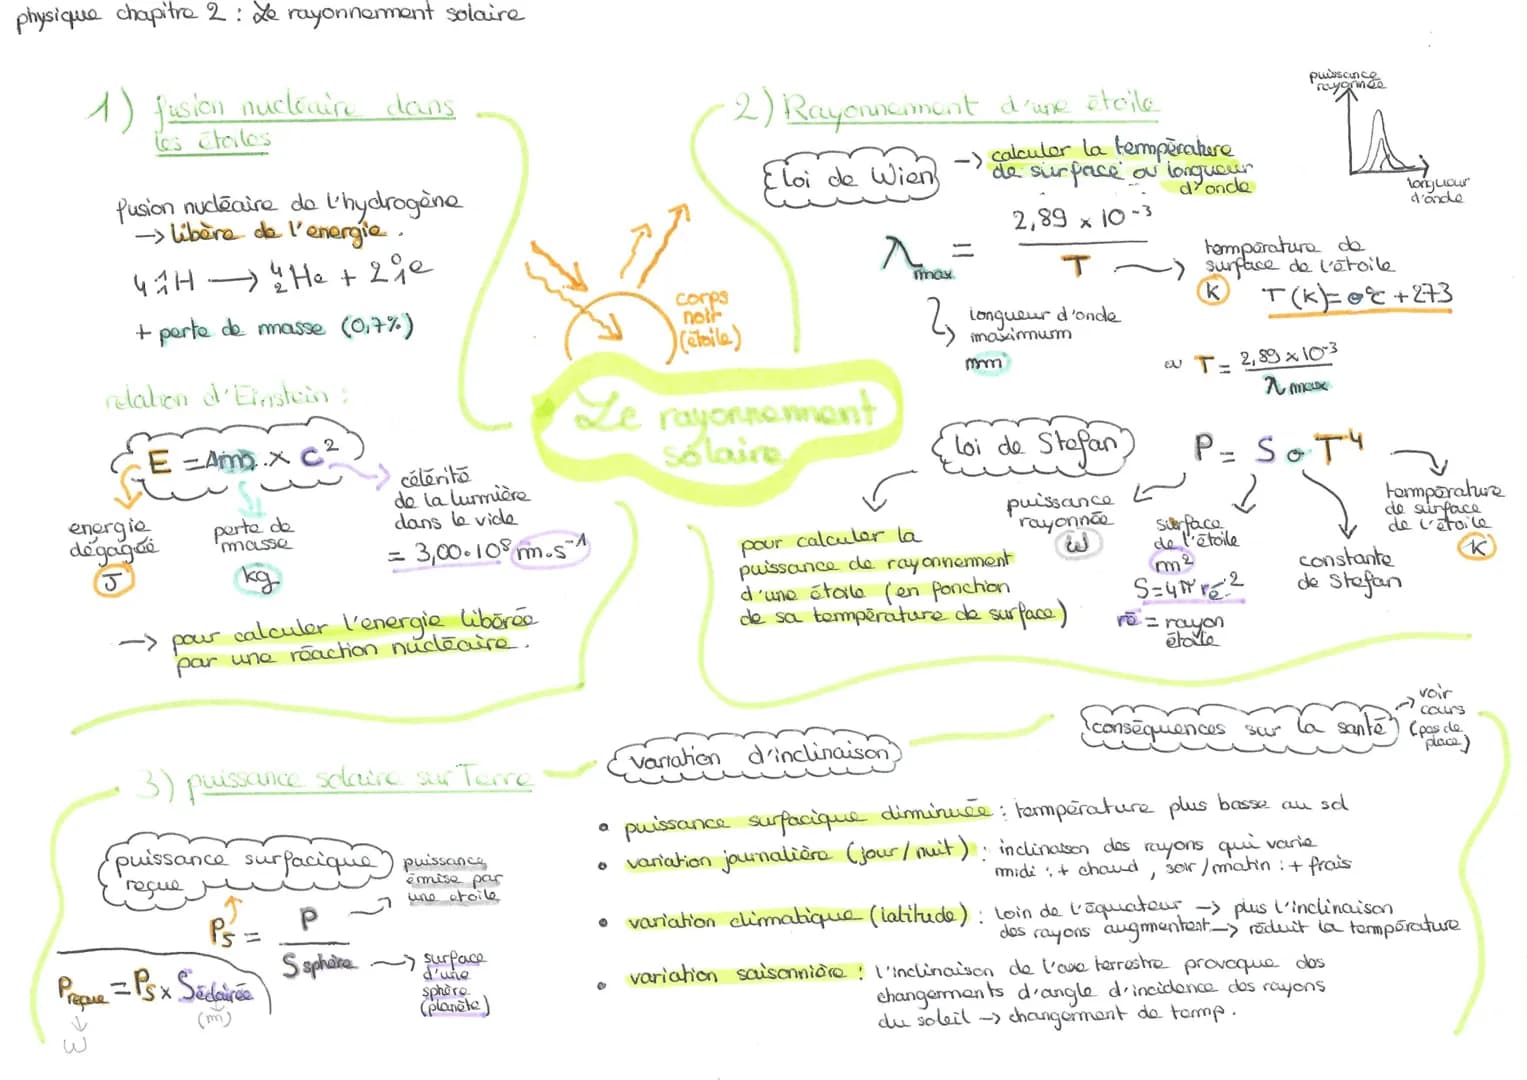 physique chapitre 2 : Le rayonnement solaire
1) fusion nucléaire dans
les étoiles
fusion nucléaire de l'hydrogène
→ libère de l'energie.
4 ¹₁H → ⁴₂He + 2 ⁰₁e
+ perte de masse (0,7%)
relation d'Einstein :
E = Δm × c²
energie
dégagée
J
perte de
masse
kg
célérité
de la lumière
dans le vide
= 3,00•10⁸ m.s⁻¹
→ pour calculer l'energie libérée
par une réaction nucléaire.
corps
noir
(étoile)
Le rayonnement
solaire
2) Rayonnement d'une étoile
puissance
rayonnée
longueur
d'onde
loi de Wien
→ calculer la température
de surface ou longueur
d'onde
λmax = 2,89 × 10⁻³ / T
température de
surface de l'étoile
K
T(K) = θ°C + 273
longueur d'onde
maximum
mm
ou T = 2,89 × 10⁻³ / λmax
loi de Stefan
P = S σ T⁴
pour calculer la
puissance de rayonnement
d'une étoile (en fonction
de sa température de surface)
puissance
rayonnée
W
surface
de l'étoile
m²
S = 4πré²
ré = rayon
étoile
constante
de Stefan
température
de surface
de l'étoile
K
3) puissance solaire sur Terre
puissance surfacique
reçue
Ps = P / Ssphère
puissance
émise par
une etoile
surface
d'une
sphère
(planète)
Preçue = Ps × Séclairée
W
(m)
variation d'inclinaison
conséquences sur la santé
→ voir
cours
(pas de
place)
• puissance surfacique diminuée : température plus basse au sol
• variation journalière (jour/nuit) : inclinaison des rayons qui varie
midi : + chaud, soir/matin : + frais
• variation climatique (latitude) : loin de l'équateur → plus l'inclinaison
des rayons augmentent → réduit la température
• variation saisonnière : l'inclinaison de l'axe terrestre provoque des
changements d'angle d'incidence des rayons
du soleil → changement de temp.